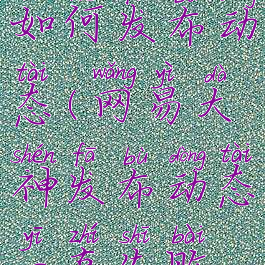 如何发布动
tài wǎng yì dà
态(网易大
shén fā bù dòng tài
神发布动态
yī zhí shī bài
一直失败